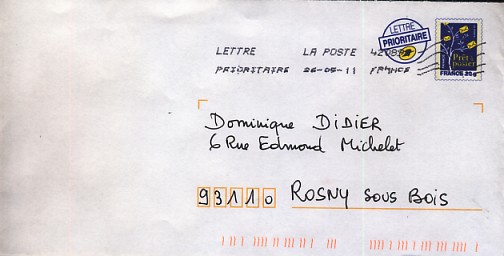 LETTRE
PRIORITAIRE
LETTRE LA POSTE
PRIORITAIRE 26-05-11 FRANCE
Prêt à
poster
FRANCE 20g
Dominique DIDIER
6 Rue Edmond Michelet
93110 ROSNY SOUS BOIS